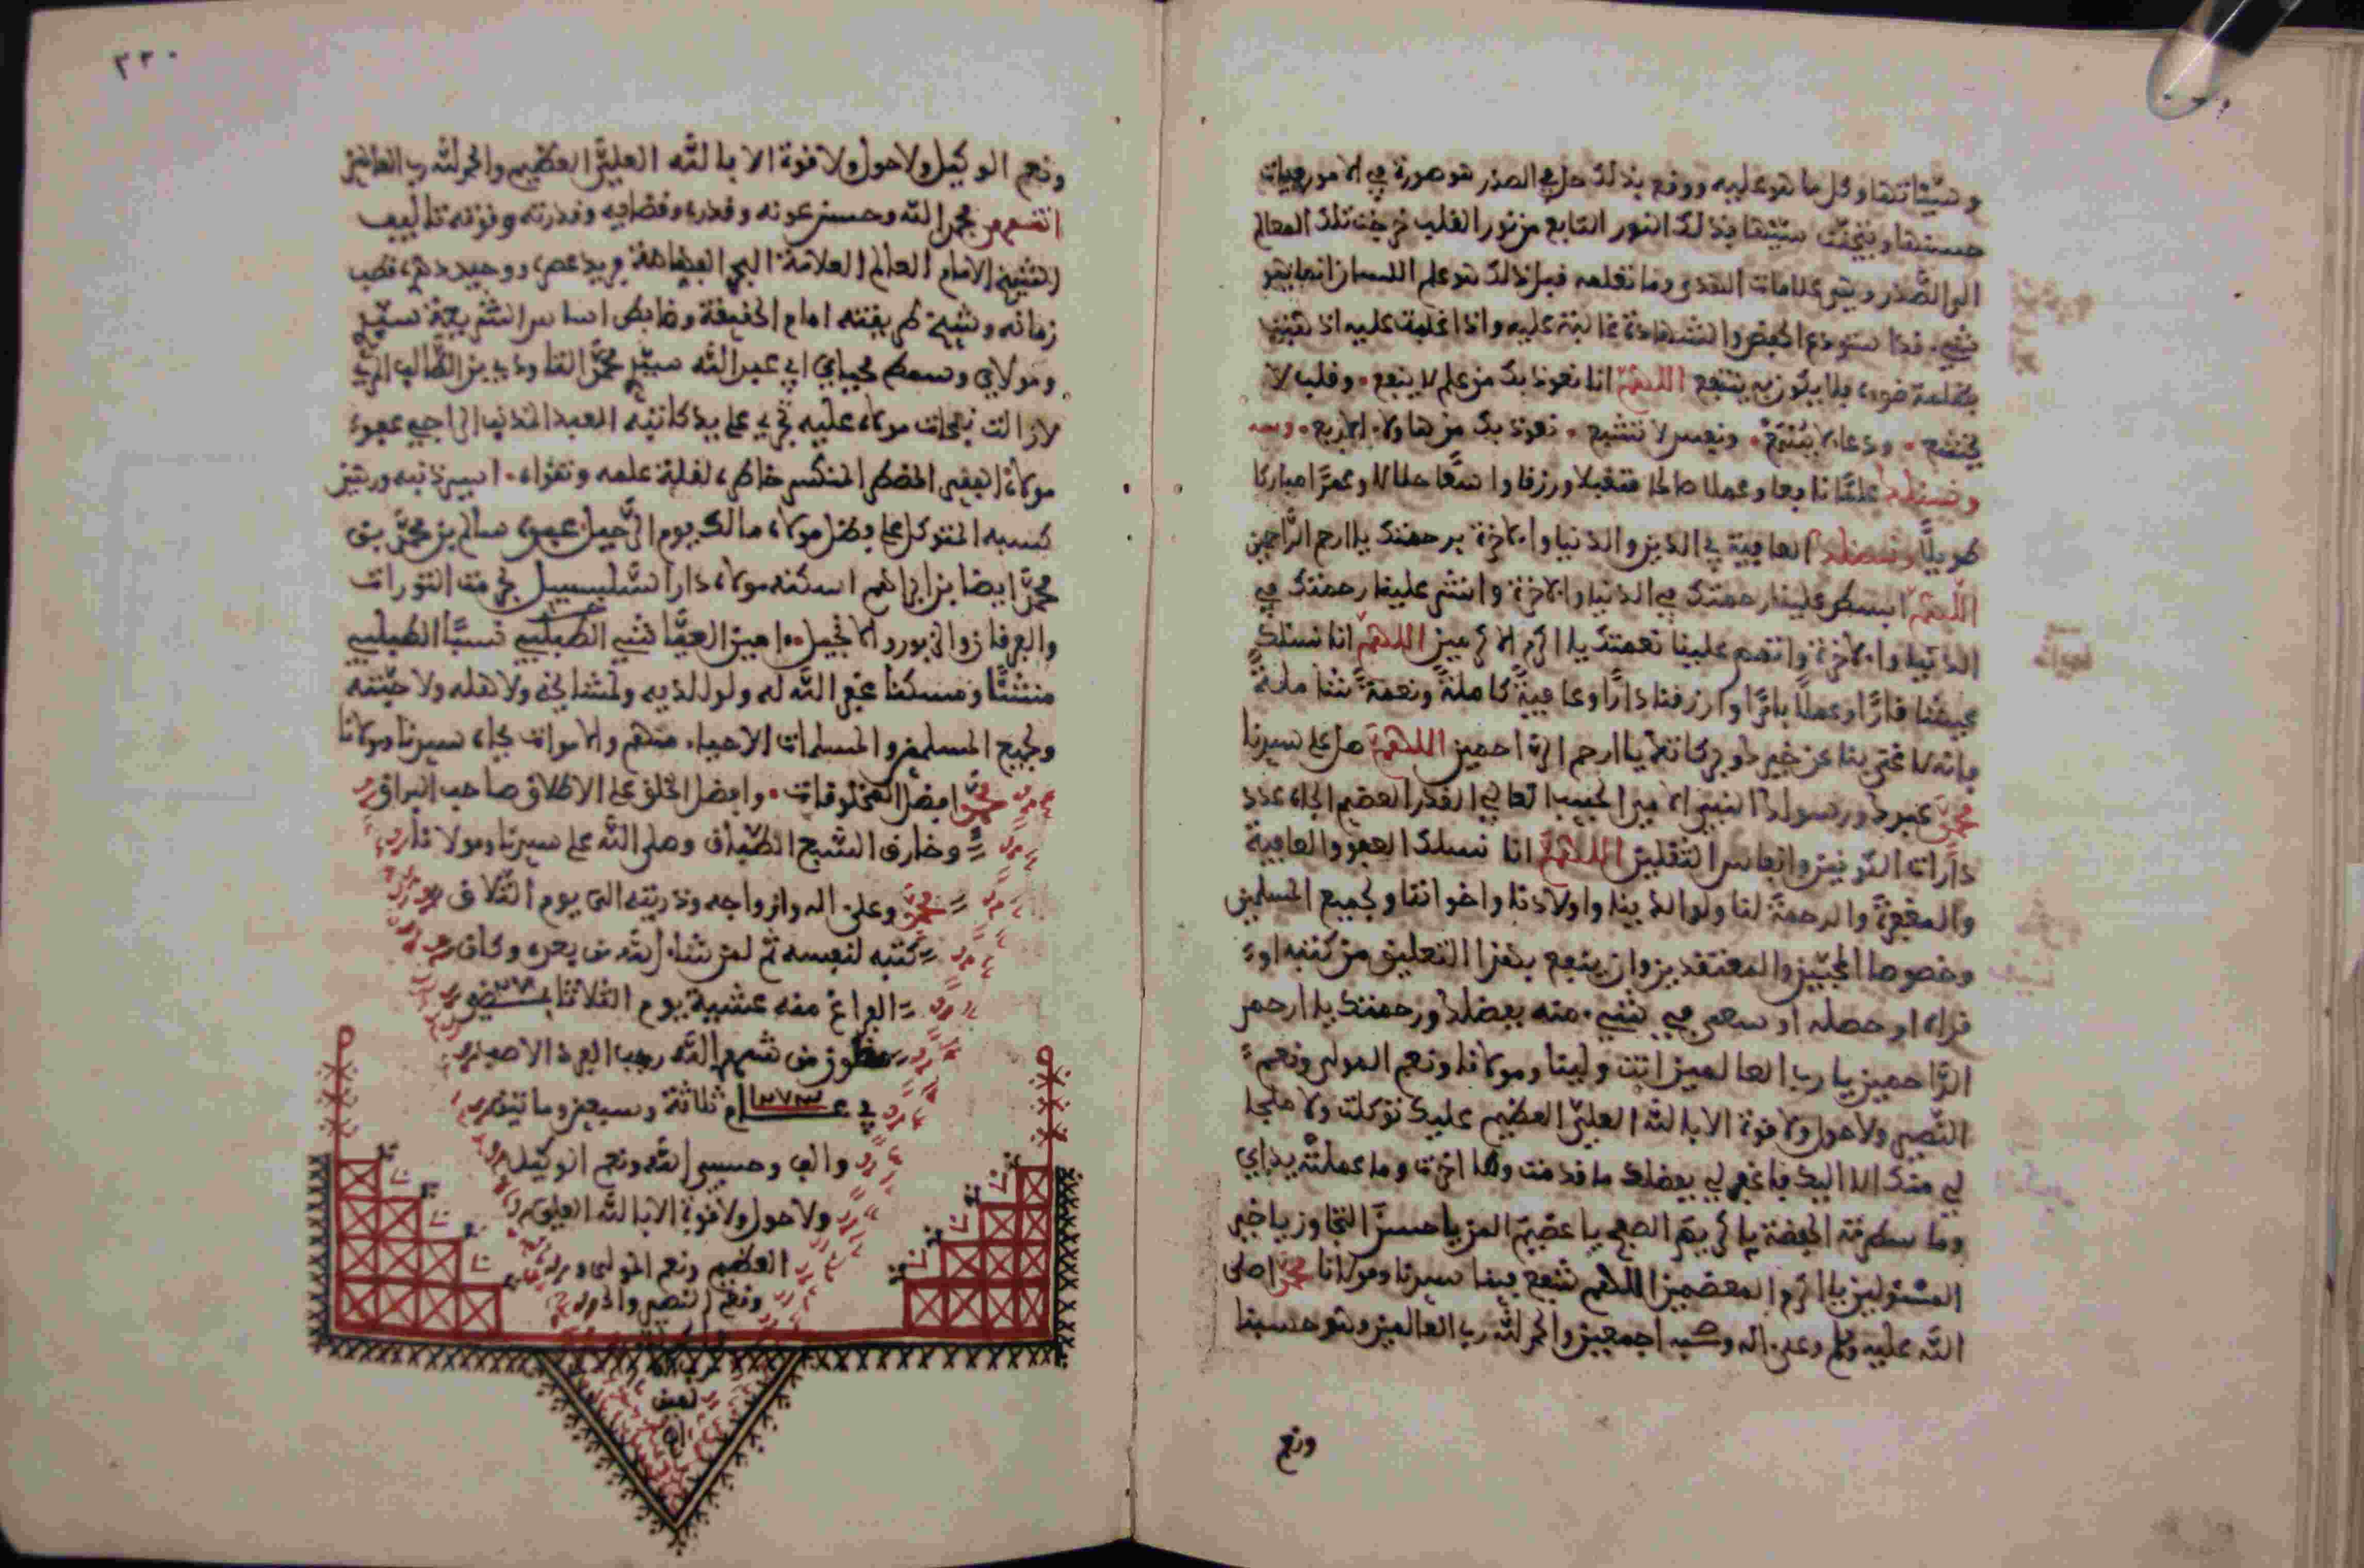 وسيئاتها وكل ما هو عليه ووقع بذلك في الصدر هو صورة في الامور
حسنها سيئها فذلك النور التابع من نور القلب خرجت تلك المعالم
الى الصدر وهي علامات الهدى وما تعلمه قبل ذلك هو علم اللسان انما هو
شيء قد استودع الحفظ والشهادة غالبة عليه واذا غلبت عليه
بظلمة ضوءه فلا يكون به ينتفع اللهم انا نعوذ بك من علم لا ينفع وقلب لا
يخشع ودعاء لا يسمع ونفس لا تشبع نعوذ بك من هاولاء الاربع
ونسئلك علما نافعا وعملا صالحا متقبلا ورزقا واسعا حلالا وعمرا مباركا
طويلا ونسئلك العافية في الدين والدنيا والاخرة برحمتك يا ارحم الراحمين
اللهم ابسط علينا رحمتك في الدنيا والاخرة وانشر علينا رحمتك في
الدنيا والاخرة واتمم علينا نعمتك يا اكرم الاكرمين اللهم انا نسئلك
عيشا قارا وعملا بارا وارزقنا دارا وعافية كاملة ونعمة شاملة
فانه لا غنى بنا عن خيرك وبركاتك يا ارحم الراحمين اللهم صل على سيدنا
محمد عبدك ورسولك النبي الامين الحبيب العالي القدر العظيم الجاه عدد
ذرات الكونين وانفاس الثقلين اللهم انا نسئلك العفو والعافية
والمغفرة والرحمة لنا ولوالدينا واولادنا واخواننا ولجميع المسلمين
وخصوصا المحبين والمعتقدين وان ينفع بهذا التعليق من كتبه او
قراه او حصله او سعى في شيء منه بفضلك ورحمتك يا ارحم
الراحمين يا رب العالمين انت ولينا ومولانا ونعم المولى ونعم
النصير ولا حول ولا قوة الا بالله العلي العظيم عليك توكلت ولا ملجا
لي منك الا اليك فاغفر لي بفضلك ما قدمت وما اخرت وما عملته يداي
وما سطرته الحفظة يا كريم الصفح يا عظيم المن يا حسن التجاوز يا خير
المسئولين يا اكرم المعظمين اللهم شفع فينا سيدنا ومولانا محمد صلى
الله عليه وسلم وعلى اله وصحبه اجمعين والحمد لله رب العالمين وهو حسبنا
ونعم
٢٣٠
ونعم الوكيل ولا حول ولا قوة الا بالله العلي العظيم والحمد لله رب العالمين
انتهى بحمد الله وحسن عونه وقدره وقضايه وقدرته وقوته تاليف
الشيخ الامام العالم العلامة البحر الفهامة فريد عصره ووحيد دهره قطب
زمانه وشيخ طريقته امام الحقيقة وضابط اساس الشريعة سيدي
ومولاي ابي عبد الله سيدي محمد التاودي بن الطالب المري
لازالت نفحات مولاه عليه تجري على يد كاتبه العبد المذنب الراجي عفو
مولاه الفقير المضطر المنكسر خاطره لقلة علمه وتقواه اسير ذنبه ورهين
كسبه المتوكل على فضل مولاه مالك يوم الرحيل عبده سالم بن محمد بن
محمد ايضا بن ابراهيم اسكنه مولاه دار السلسبيل بحرمت التورات
والفرقان والزبور والانجيل امين العياشي نسبا
منشئا ومسكنا غفر الله له ولوالديه ولمشايخه ولاهله ولاحبته
ولجميع المسلمين والمسلمات الاحياء منهم والاموات بجاه سيدنا ومولانا
محمد افضل المخلوقات وافضل الخلق على الاطلاق صاحب البراق
وخارق السبع الطباق وصلى الله على سيدنا ومولانا
محمد وعلى اله وازواجه وذريته الى يوم التلاق
كتبه لنفسه ثم لمن شاء الله من بعده وكان
الفراغ منه عشية يوم الثلاثا
من شهر الله رجب الفرد الاصم
في عام ١٢٧٣ ثلاثة وسبعين وماتين
والف وحسبي الله ونعم الوكيل
ولا حول ولا قوة الا بالله العلي
العظيم ونعم المولى
ونعم النصير والحمد